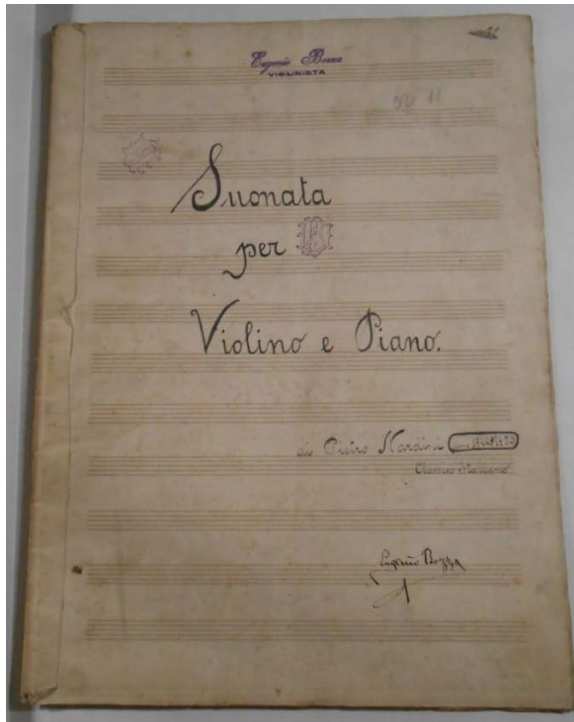 Eugenio Bozza
VIOLINISTA
Suonata
per B
Violino e Piano.
di Pietro Nardini
Classico Italiano
Eugenio Bozza